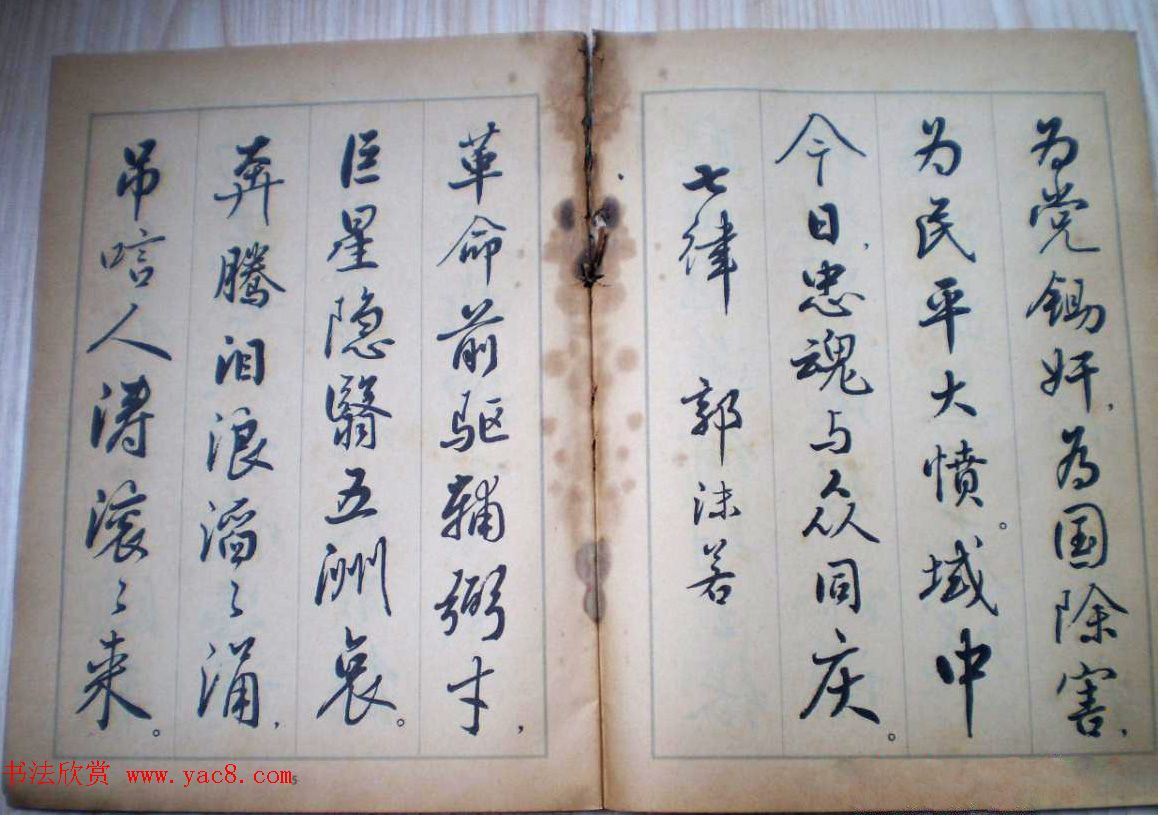 为党锄奸，为国除害，
为民平大愤。域中
今日，忠魂与众同庆。
七律 郭沫若
革命前驱辅弼才，
巨星隐翳五洲哀。
奔腾泪浪滔〻涌，
吊唁人涛滚〻来。
书法欣赏 www.yac8.com
5